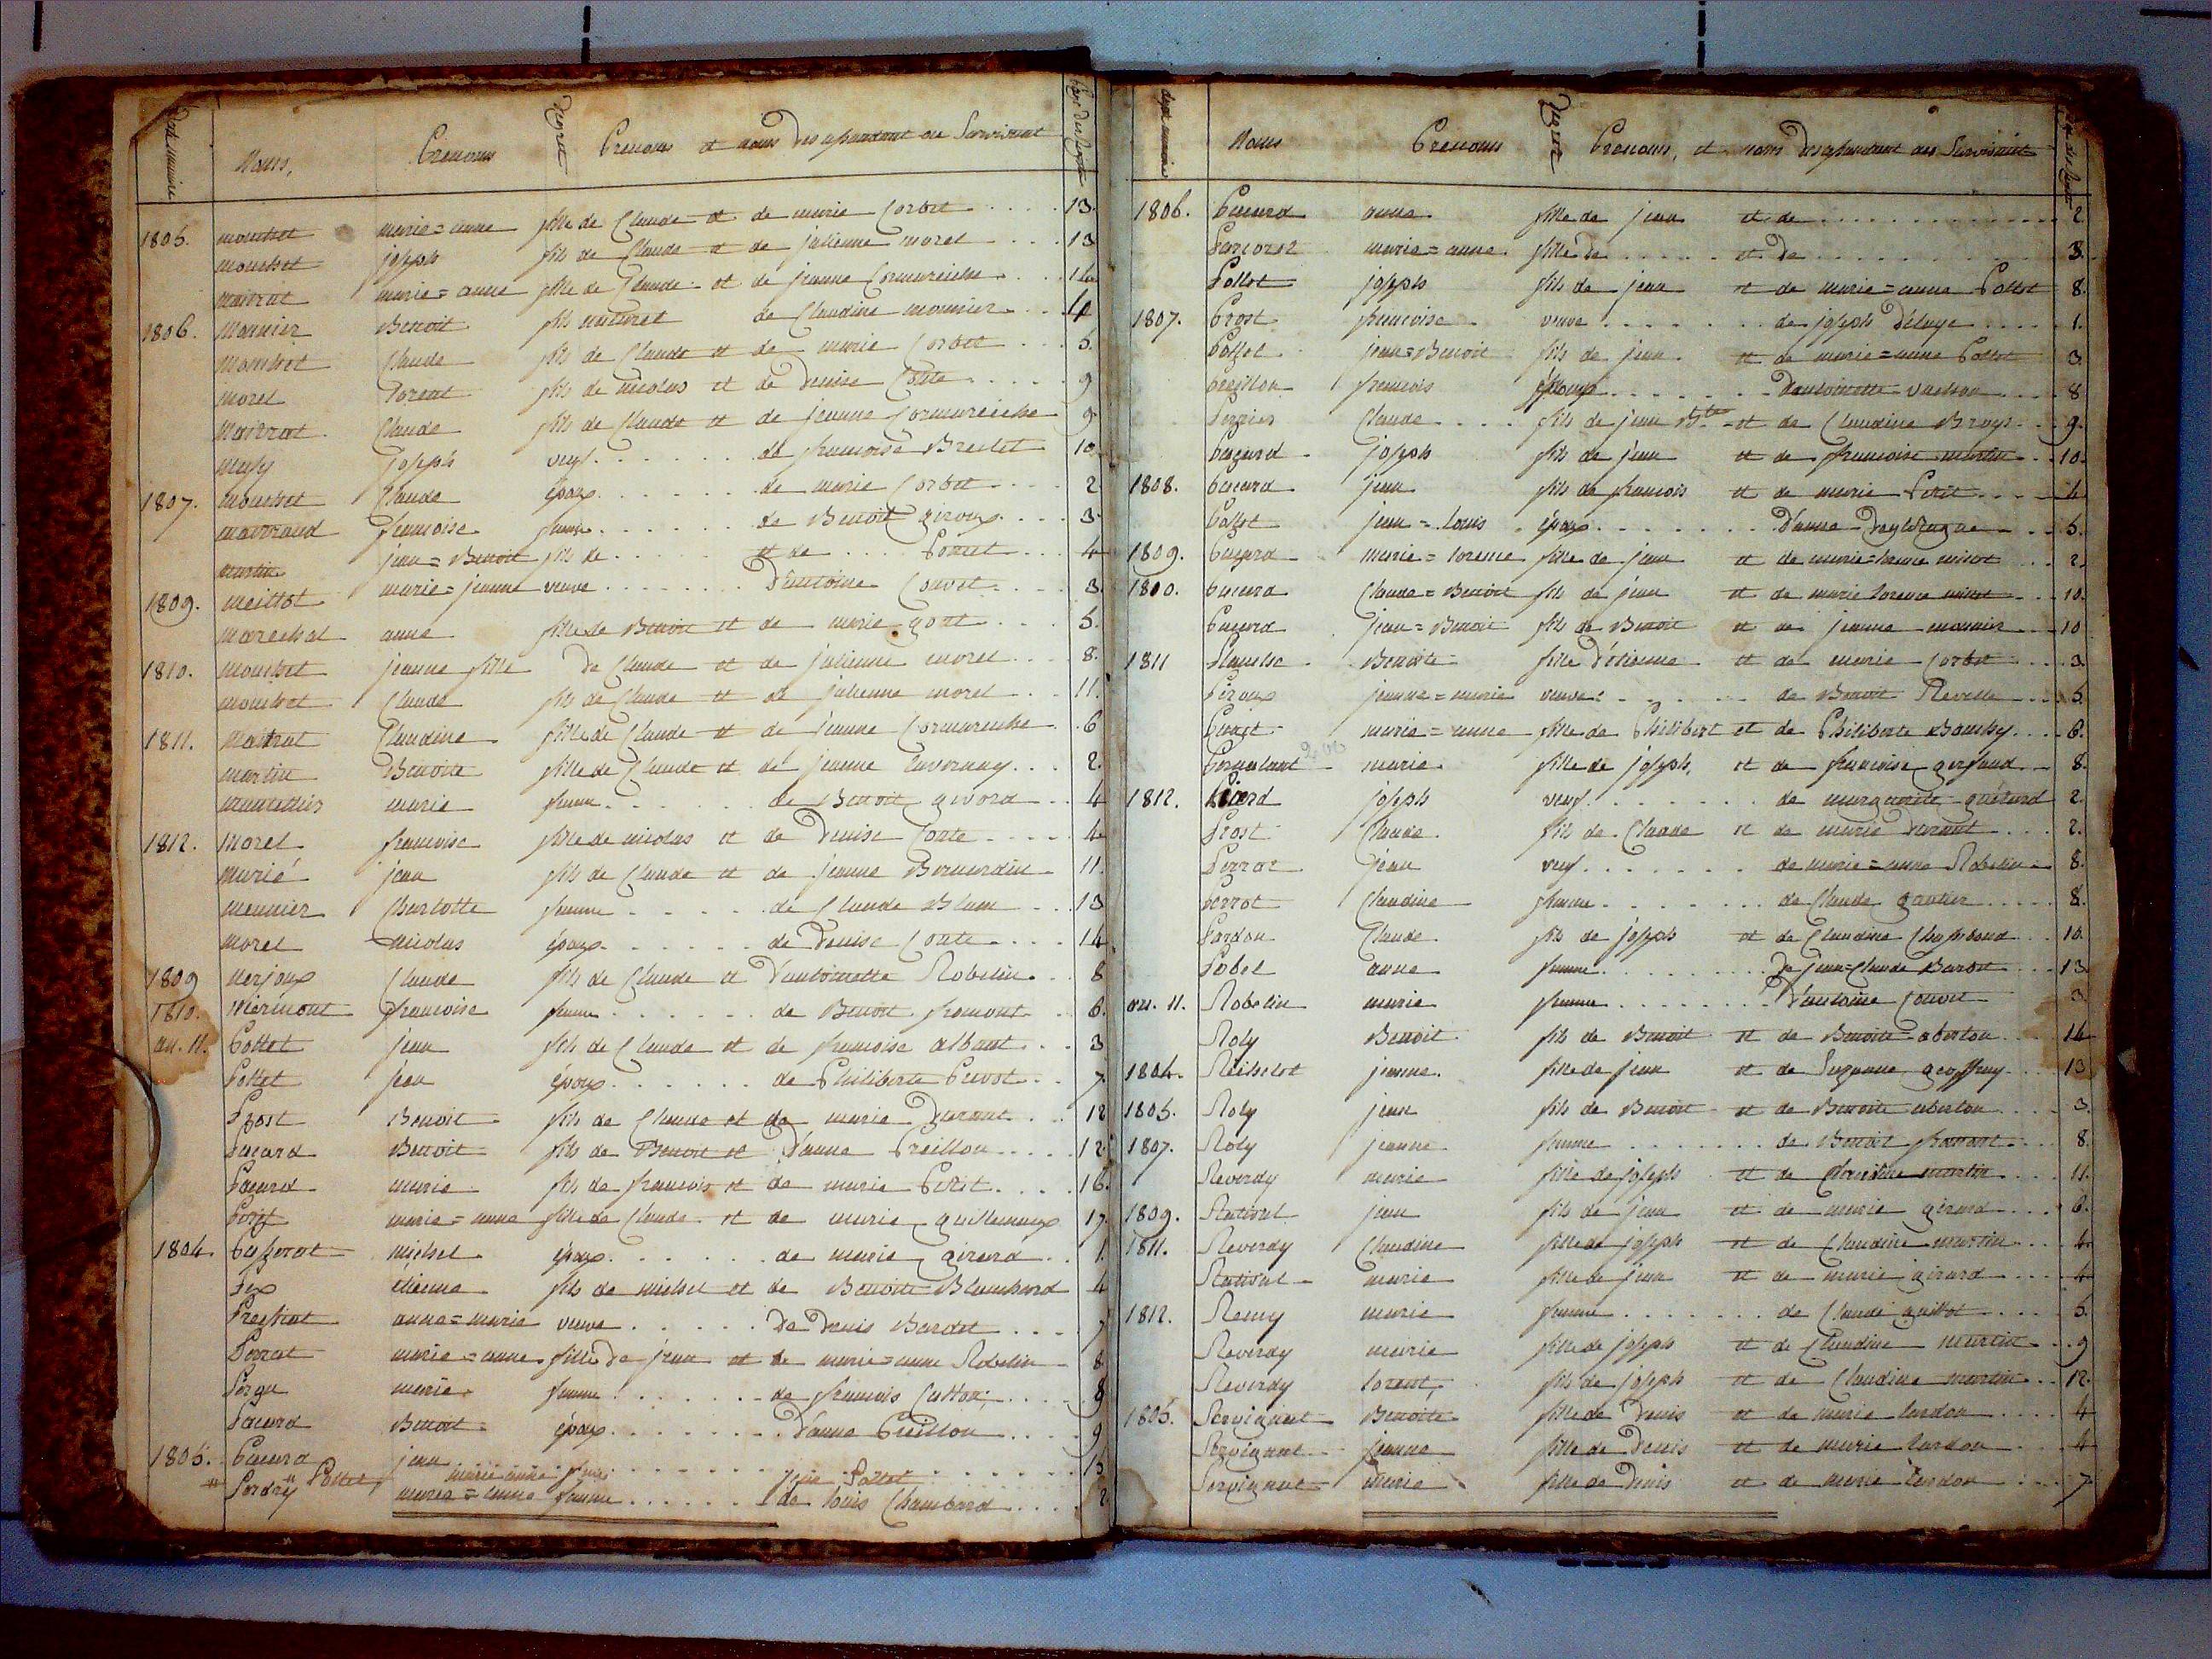 Noms, Prenoms Degret Prenoms et noms des ascendant ou Survivant
1805. mouchet marie=anne fille de Claude et de marie Corbet .... 13.
mouchet joseph fils de Claude et de julienne morel ... 13
maitrat marie=anne fille de Claude et de jeanne Cormareiche ...
1806. Monnier Benoit fils naturel de Claudine monnier ... 4
Mouchet Claude fils de Claude et de marie Corbet ... 5.
Morel Lorent fils de nicolas et de Denise Conte .... 9
Maitrat Claude fils de Claude et de jeanne Cormareiche 9
joseph veuf ...... de francoise Brestet 10
1807. Mouchet Claude époux ...... de marie Corbet .... 2
francoise femme ...... de Benoit giroux .... 3
martin jean=Benoit fils de ...... et de ... 4
1809. Meillot marie=jeanne veuve ........ D'antoine Convet .... 3.
Marechal anne fille de Benoit et de marie gott .... 5.
1810. Mouchet jeanne fille De Claude et de julienne morel .... 8.
mouchet Claude fils de Claude et de julienne morel ... 11.
1811. Maitrat Claudine fille de Claude et de jeanne Cormareiche .. 6
martin Benoite fille de Claude et de jeanne Tavernay ... 2.
marie femme ...... de Benoit givord ... 4
1812. Morel francoise fille de nicolas et de Denise Conte ..... 4
Murié jean fils de Claude et de jeanne Bernardin 11.
Meunier Charlotte femme ..... de Claude Blanc ... 13
Morel Nicolas époux ...... de Denise Conte .... 14
1809 Merjoux Claude fils de Claude et D'antoinette Robelin .. 8
1810. Miermont francoise femme ...... de Benoit fromont .. 6.
an. 11. Pottet jean fils de Claude et de francoise albant ... 3
Pottet jean époux ...... de Philiberte Prevot .. 7
Prost Benoit fils de Claude et de marie Durant ... 12
Pacard Benoit fils de Benoit et D'anne Preillon ..... 12
Pacard marie fils de francois et de marie Petit .... 16.
Petit marie=anne fille de Claude et de marie guillemaux 17
1804. michel époux ...... de marie girard .. 1.
étienne fils de michel et de Benoite Blanchard 4
anne=marie veuve ..... De Denis Bardet .... 7
Perrat marie=anne fille De jean et de marie=anne Robelin 8
marie femme ...... de francois Cutton ..... 8
Pacard Benoit époux ........ D'anne Preillon .... 9
1805. Pacard jean ............ 15
Pottet, marie anne jean Pottet
marie=anne femme ...... de louis Chambard .... 2.
Noms Prenoms Degret Prenoms, et noms des ascendant ou Survivant
1806. Pacard anne fille de jean et de ............ 2
marie=anne fille De ..... et De ............ 3.
Pottet joseph fils de jean et de marie=anne Pottet 8.
1807. Prost francoise veuve ........ de joseph Déluye .... 1.
Pottet jean=Benoit fils de jean et de marie=anne Pottet 3
Preillon francois époux ....... D'antoinette Vachon .... 8
Claude .... fils de jean Bte et de Claudine Broyer ... 9.
Pagard joseph fils de jean et de francoise martin .. 10.
1808. Pacard jean fils de francois et de marie Petit .... 4
Pottet jean=louis époux ....... D'anne ... 5.
1809. Pacard marie=lorence fille de jean et de marie=lorence millot ... 2.
1810. Pacard Claude=Benoit fils de jean et de marie lorence millot ... 10.
Pacard jean=Benoit fils de Benoit et de jeanne monnier ... 10
1811 Planche Benoite fille D'étienne et de marie Corbet .... 3.
Piroux jeanne=marie veuve ...... de Benoit Revelle ... 5
marie=anne fille de Philibert et de Philiberte Bouchy .... 6.
marie fille de joseph, et de francoise gerfaud .. 8.
1812. joseph veuf ....... de marguerite guérard 2.
Prost Claude fils de Claude et de marie Durant .... 2.
Perrat jean veuf ....... de marie=anne Robelin .. 8.
Perrot Claudine femme ....... de Claude gautier ..... 8.
Pardon Claude fils de joseph et de Claudine Chassibond .. 10.
Pobel anne femme ........ De jean=Claude Bardet ... 13
an. 11. Robelin marie femme ....... D'antoine Convet 3.
Roly Benoit fils de Benoit et de Benoite aberlon ... 14
1804. Reichelot jeanne fille de jean et de Suzanne geoffray .. 13
1805. Roly jean fils de Benoit et de Benoite aberlon .... 3.
1807. Roly jeanne femme ....... de Benoit fromont .... 8.
Reverdy marie fille de joseph et de Claudine martin .... 11.
1809. Rativat jean fils de jean et de marie girard .... 6.
1811. Reverdy Claudine fille de joseph et de Claudine martin ... 4
Rativat marie fille de jean et de marie girard .... 4
1812. Remy marie femme ........ de Claude guillot .... 5
Reverdy marie fille de joseph et de Claudine Martin .. 9
Reverdy lorent, fils de joseph et de Claudine martin .. 12.
1805. Servignat Benoite fille de Denis et de marie lardon .... 4
Servignat jeanne fille de Denis et de marie lardon ... 4
Servignat marie fille de Denis et de marie lardon .... 7